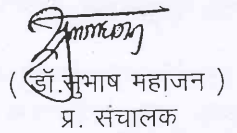 ( डॉ.सुभाष महाजन )
प्र. संचालक